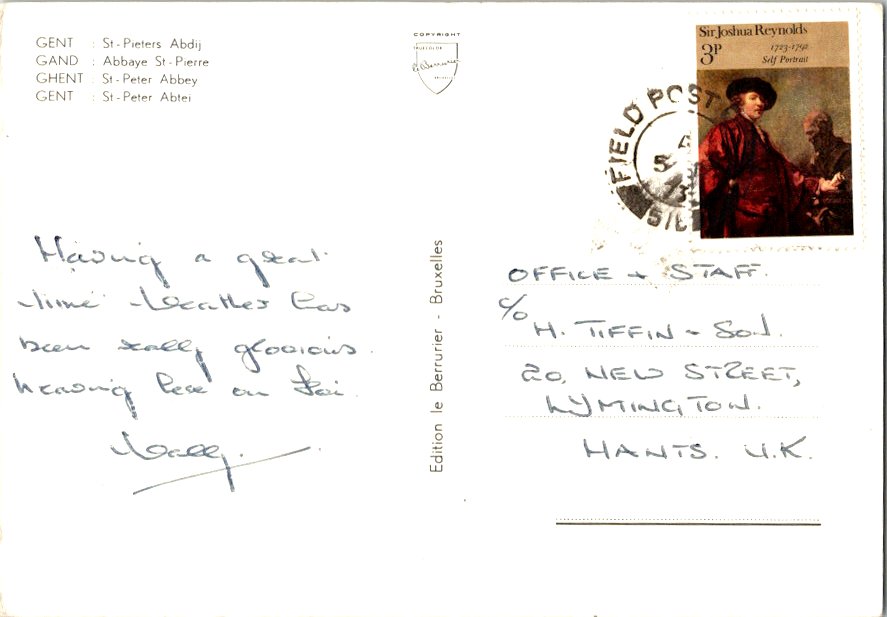 GENT : St-Pieters Abdij
GAND : Abbaye St-Pierre
GHENT : St-Peter Abbey
GENT : St-Peter Abtei
COPYRIGHT
Sir Joshua Reynolds
3P
1723-1792
Self Portrait
FIELD POST
Having a great
time Weather has
been really glorious.
leaving here on Fri.
Wally.
Edition le Berrurier - Bruxelles
OFFICE + STAFF.
c/o
H. TIFFIN + SON.
20, NEW STREET,
LYMINGTON.
HANTS. U.K.